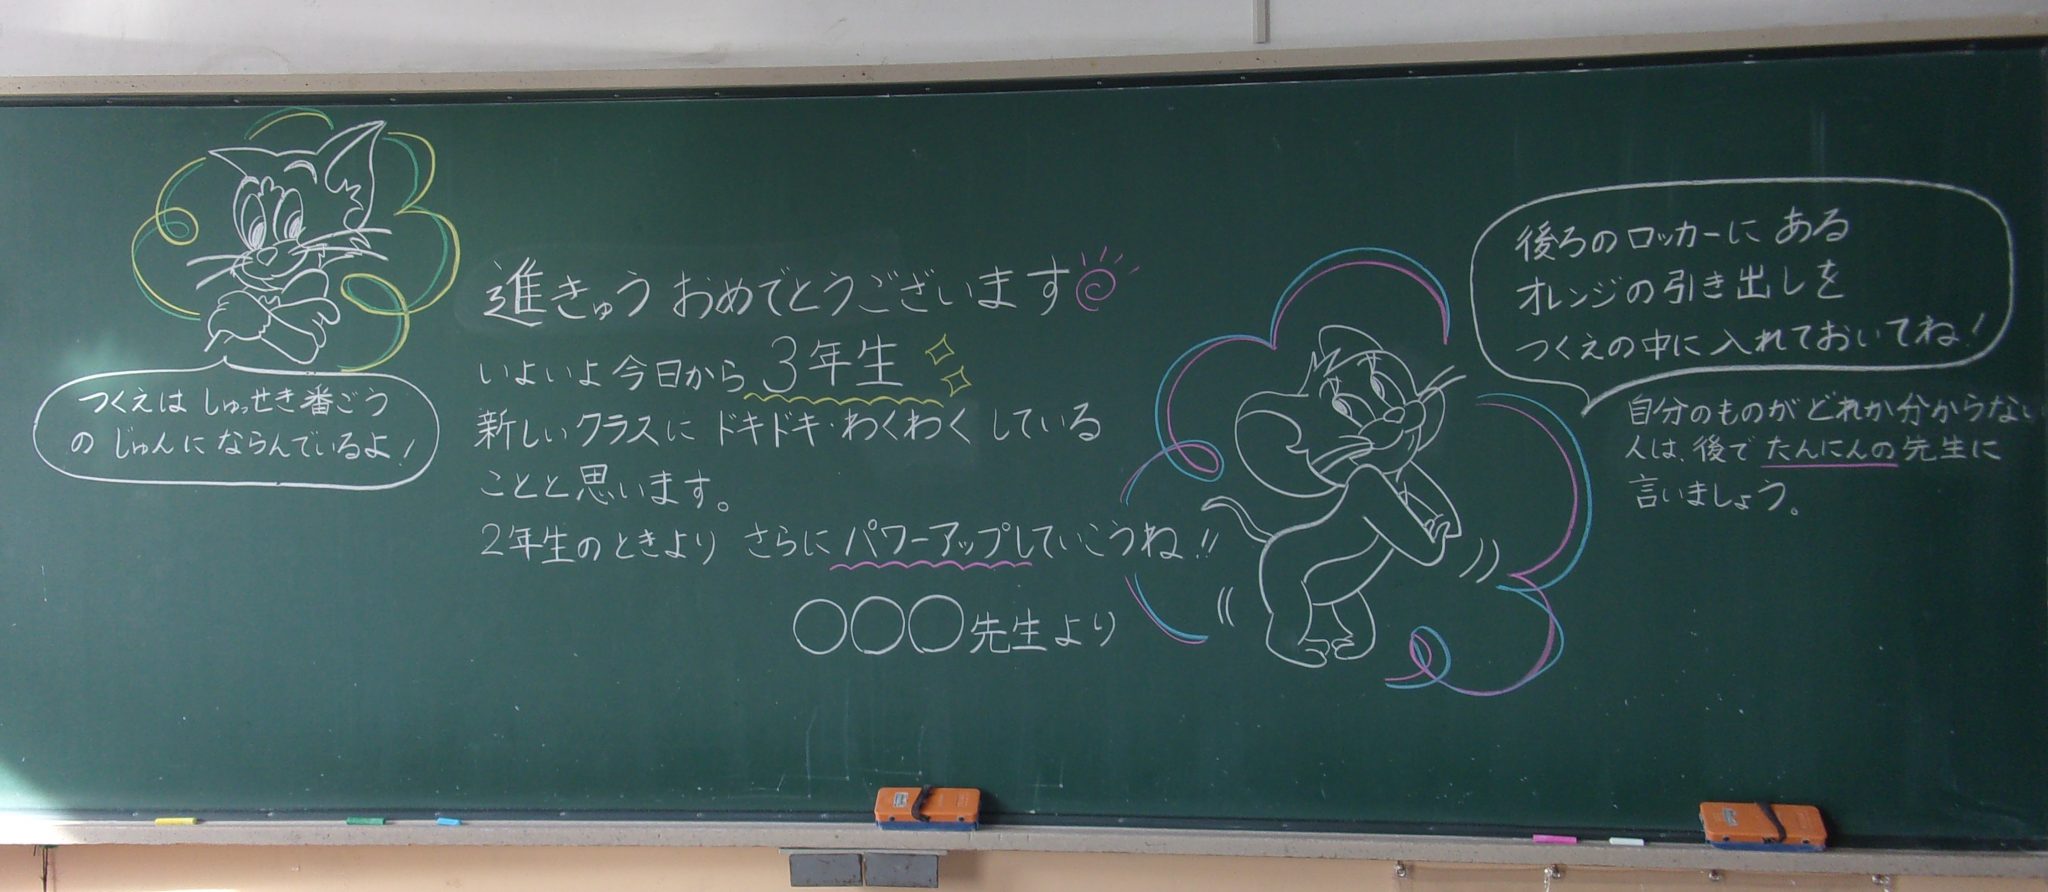 つくえは しゅっせき番ごう
の じゅんに ならんでいるよ!
進きゅう おめでとうございます
いよいよ今日から 3年生
新しいクラスに ドキドキ・わくわく している
ことと思います。
2年生のときより さらに パワーアップしていこうね!!
○○○先生より
後ろのロッカーに ある
オレンジの引き出しを
つくえの中に入れておいてね!
自分のものが どれか分からない
人は、後で たんにんの先生に
言いましょう。